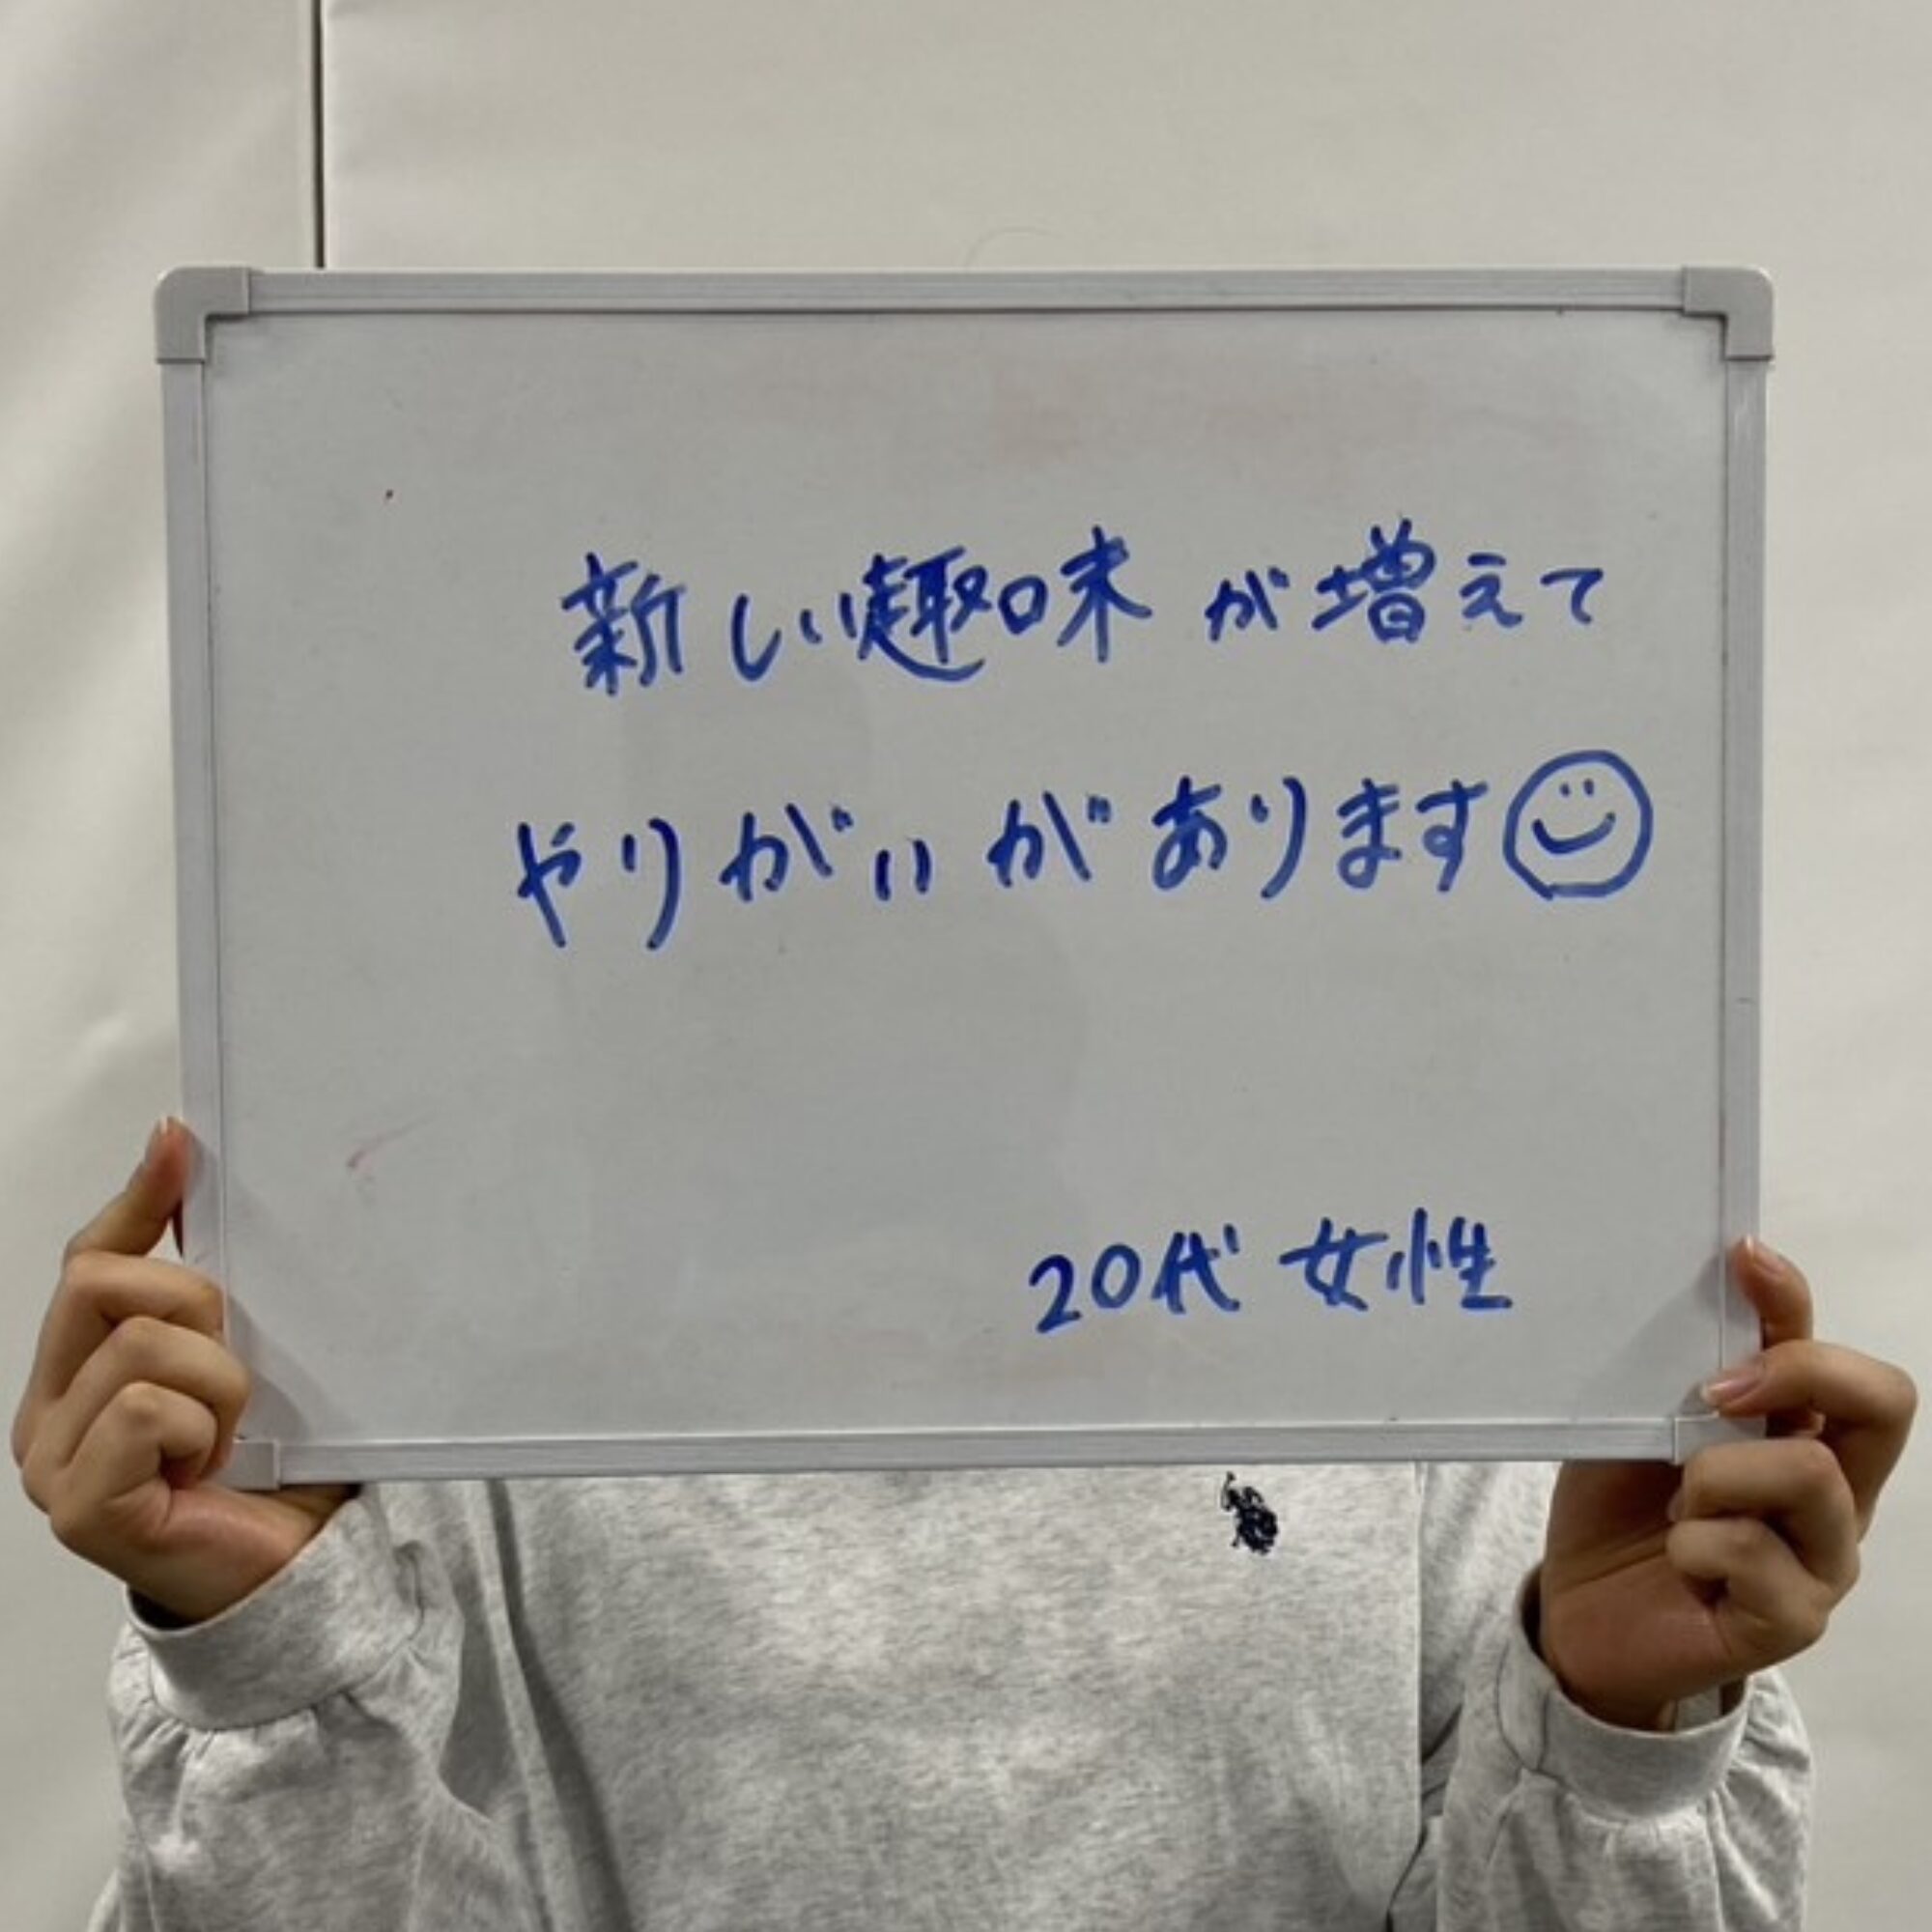 新しい趣味が増えて
やりがいがあります☺
20代 女性